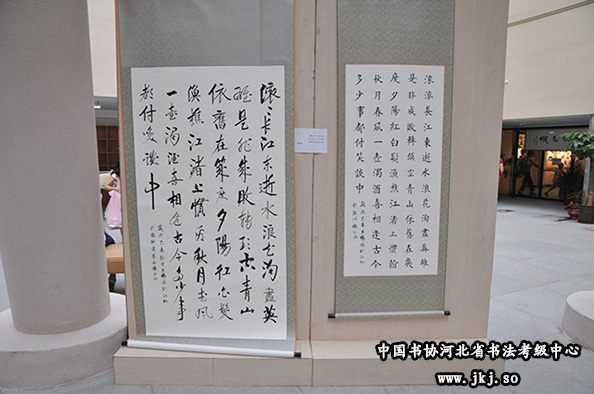 滚々长江东逝水浪花淘盡英
雄是非成败转头空青山
依舊在几度夕陽红白髮
渔樵江渚上惯看秋月春风
一壶浊酒喜相逢古今多少事
都付笑谈中
滚滚長江東逝水浪花淘盡英雄
是非成敗轉頭空青山依舊在幾
度夕陽紅白髮漁樵江渚上慣看
秋月春風一壺濁酒喜相逢古今
多少事都付笑談中
中国书协河北省书法考级中心
www.jkj.so